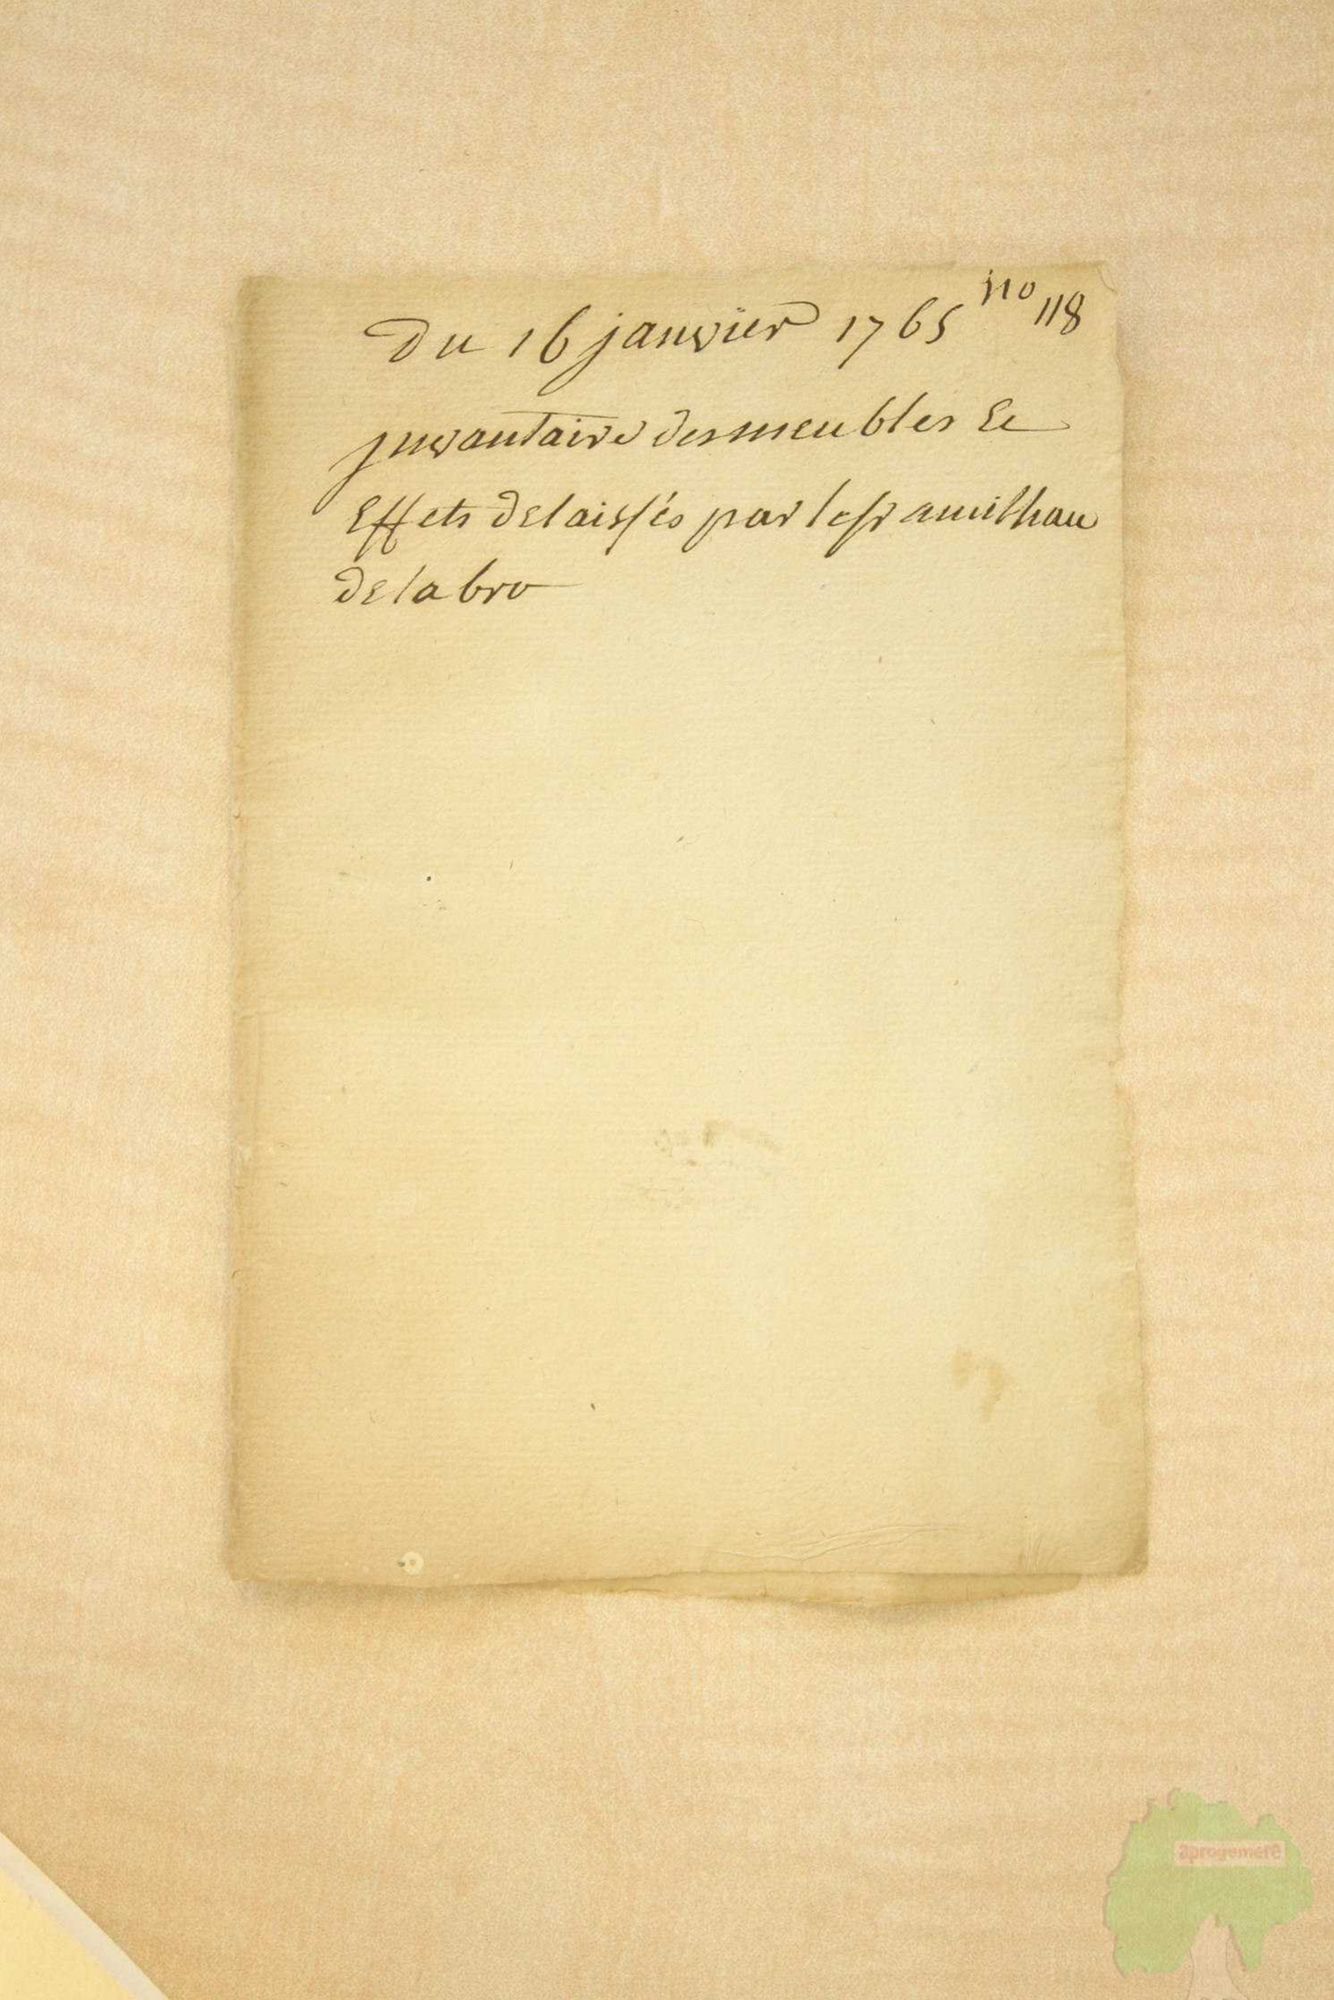 no 118
Du 16 janvier 1765
jnvantaire des meubles Et
Effets delaissés par le sr amilhau
de labro
aprogemere